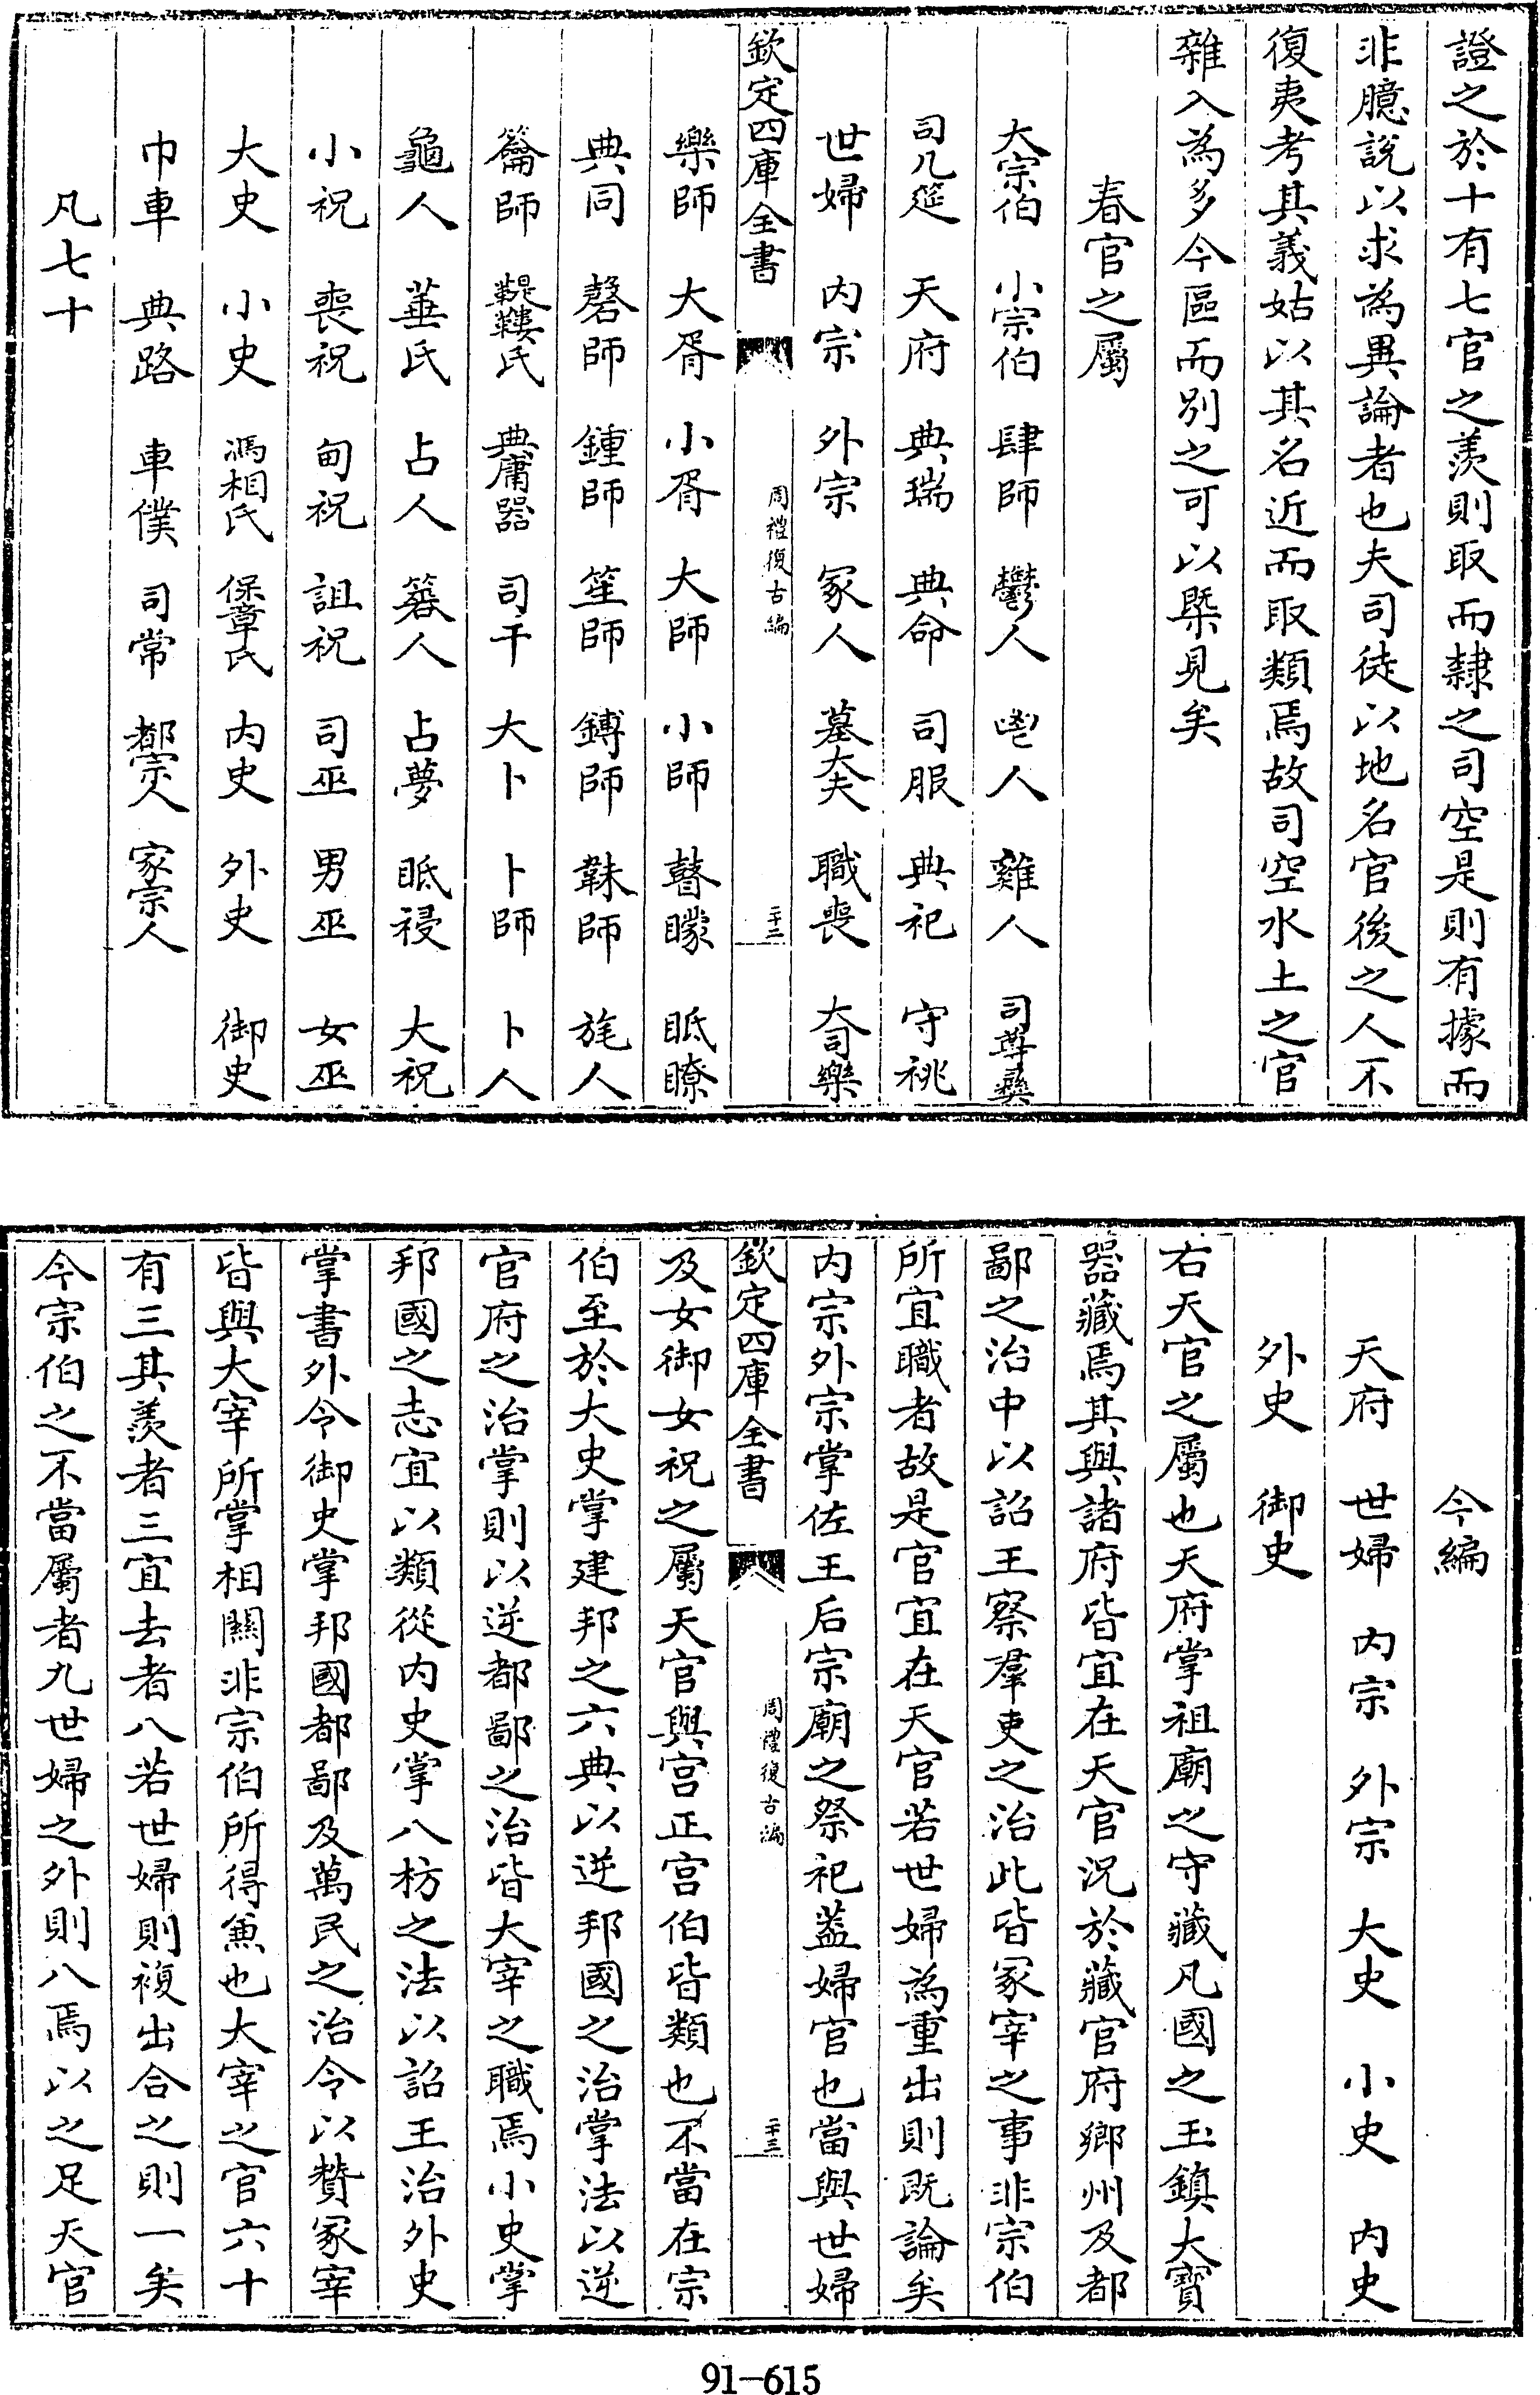 證之於十有七官之羨則取而隸之司空是則有據而
非臆說以求為異論者也夫司徒以地名官後之人不
復夷考其義姑以其名近而取類焉故司空水土之官
雜入為多今區而別之可以槩見矣
春官之屬
大宗伯 小宗伯 肆師 鬱人 鬯人 雞人 司尊彞
司几筵 天府 典瑞 典命 司服 典祀 守祧
世婦 内宗 外宗 冢人 墓大夫 職喪 大司樂
欽定四庫全書 周禮復古編 二十二
樂師 大胥 小胥 大師 小師 瞽矇 眡瞭
典同 磬師 鍾師 笙師 鎛師 韎師 旄人
籥師 鞮鞻氏 典庸器 司干 大卜 卜師 卜人
龜人 菙氏 占人 簭人 占夢 眡祲 大祝
小祝 喪祝 甸祝 詛祝 司巫 男巫 女巫
大史 小史 馮相氏 保章氏 内史 外史 御史
巾車 典路 車僕 司常 都宗人 家宗人
凡七十
今編
天府 世婦 内宗 外宗 大史 小史 内史
外史 御史
右天官之屬也天府掌祖廟之守藏凡國之玉鎮大寶
器藏焉其與諸府皆宜在天官況於藏官府鄉州及都
鄙之治中以詔王察羣吏之治此皆冢宰之事非宗伯
所宜職者故是官宜在天官若世婦為重出則既論矣
内宗外宗掌佐王后宗廟之祭祀蓋婦官也當與世婦
欽定四庫全書 周禮復古編 二十三
及女御女祝之屬天官與宫正宫伯皆類也不當在宗
伯至於大史掌建邦之六典以逆邦國之治掌法以逆
官府之治掌則以逆都鄙之治皆大宰之職焉小史掌
邦國之志宜以類從内史掌八枋之法以詔王治外史
掌書外令御史掌邦國都鄙及萬民之治令以贊冢宰
皆與大宰所掌相關非宗伯所得兼也大宰之官六十
有三其羨者三宜去者八若世婦則複出合之則一矣
今宗伯之不當屬者九世婦之外則八焉以之足天官
91-615